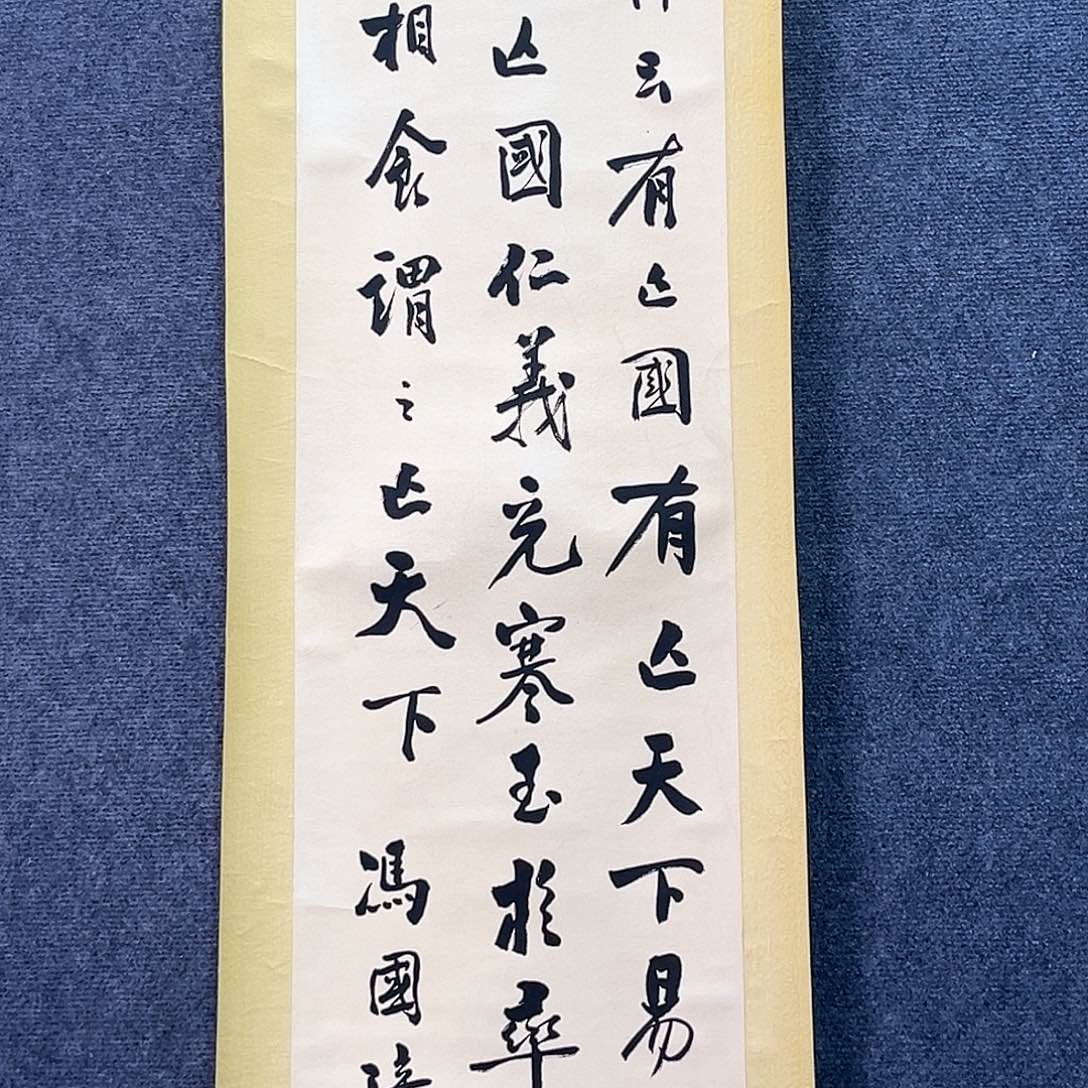 云有亡國有亡天下易
亡國仁義充塞至於率
相食謂之亡天下 馮國